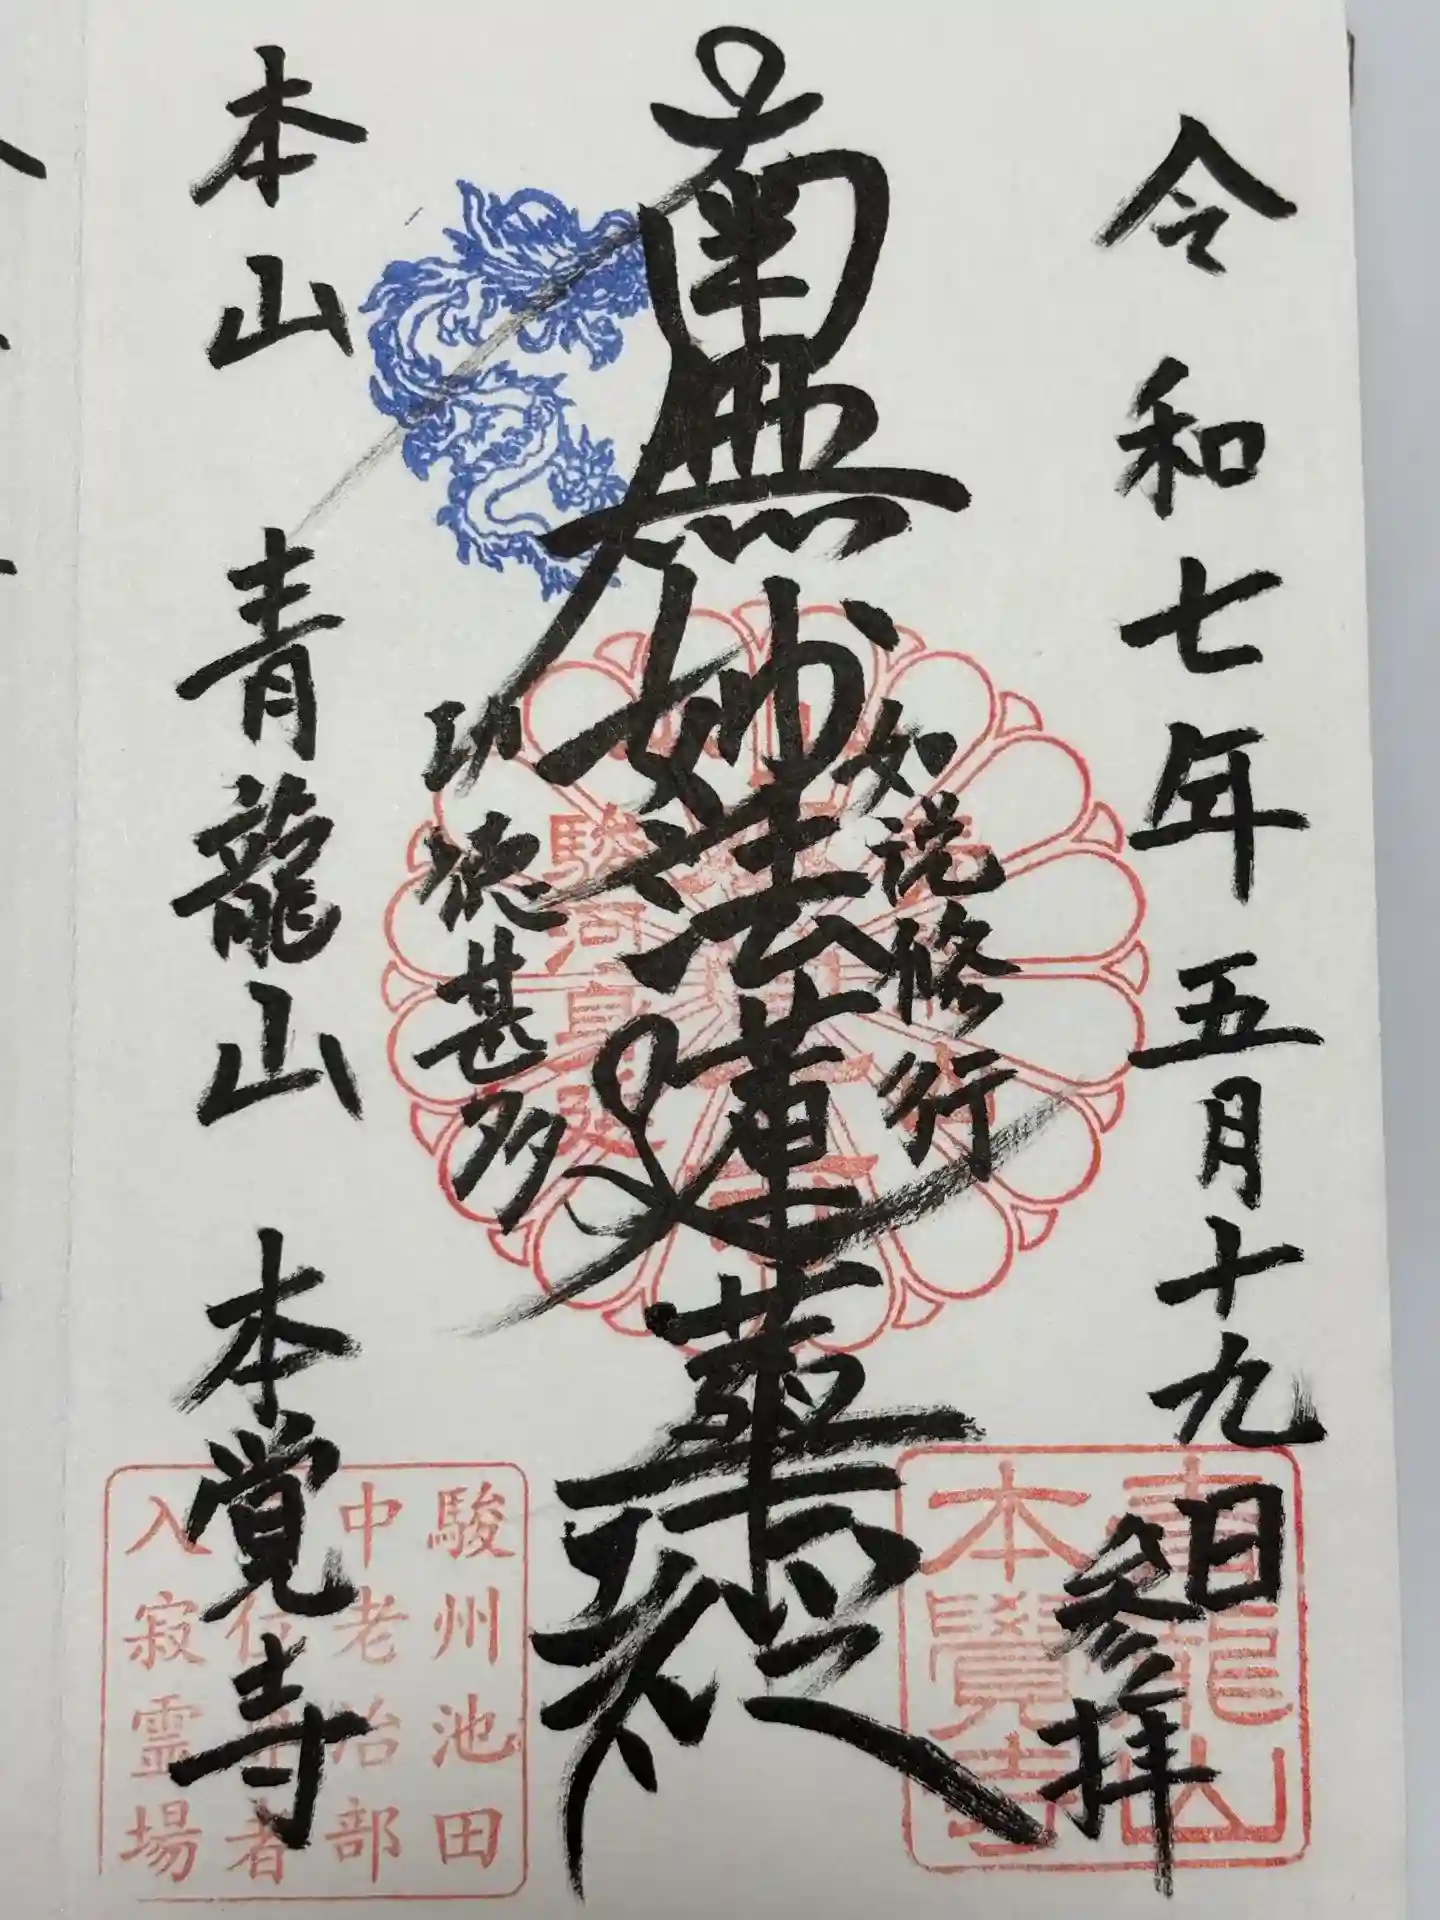 令和七年五月十九日参拝
如説修行
南無妙法蓮華経
功徳甚多
本山 青龍山 本覚寺
駿河身延
青龍山
本覺寺
駿州池田
中老治部
位
者
入寂霊場